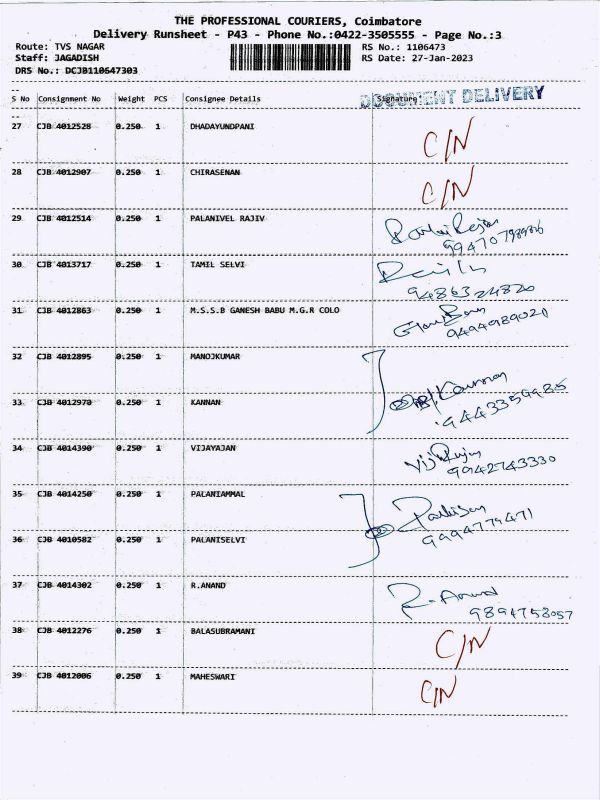 THE PROFESSIONAL COURIERS, Coimbatore
Delivery Runsheet - P43 - Phone No.:0422-3505555 - Page No.:3
Route: TVS NAGAR RS No.: 1106473
Staff: JAGADISH RS Date: 27-Jan-2023
DRS No.: DCJB110647303
S No Consignment No Weight PCS Consignee Details Signature
DOCUMENT DELIVERY
27 CJB 4012528 0.250 1 DHADAYUNDPANI C/N
28 CJB 4012907 0.250 1 CHIRASENAN C/N
29 CJB 4012514 0.250 1 PALANIVEL RAJIV
30 CJB 4013717 0.250 1 TAMIL SELVI
9486324820
31 CJB 4012863 0.250 1 M.S.S.B GANESH BABU M.G.R COLO
9494989021
32 CJB 4012895 0.250 1 MANOJKUMAR
33 CJB 4012970 0.250 1 KANNAN
9443359985
34 CJB 4014390 0.250 1 VIJAYAJAN
9942743330
35 CJB 4014250 0.250 1 PALANIAMMAL
9994779471
36 CJB 4010582 0.250 1 PALANISELVI
37 CJB 4014302 0.250 1 R.ANAND R. Anand
9894753057
38 CJB 4012276 0.250 1 BALASUBRAMANI C/N
39 CJB 4012006 0.250 1 MAHESWARI C/N